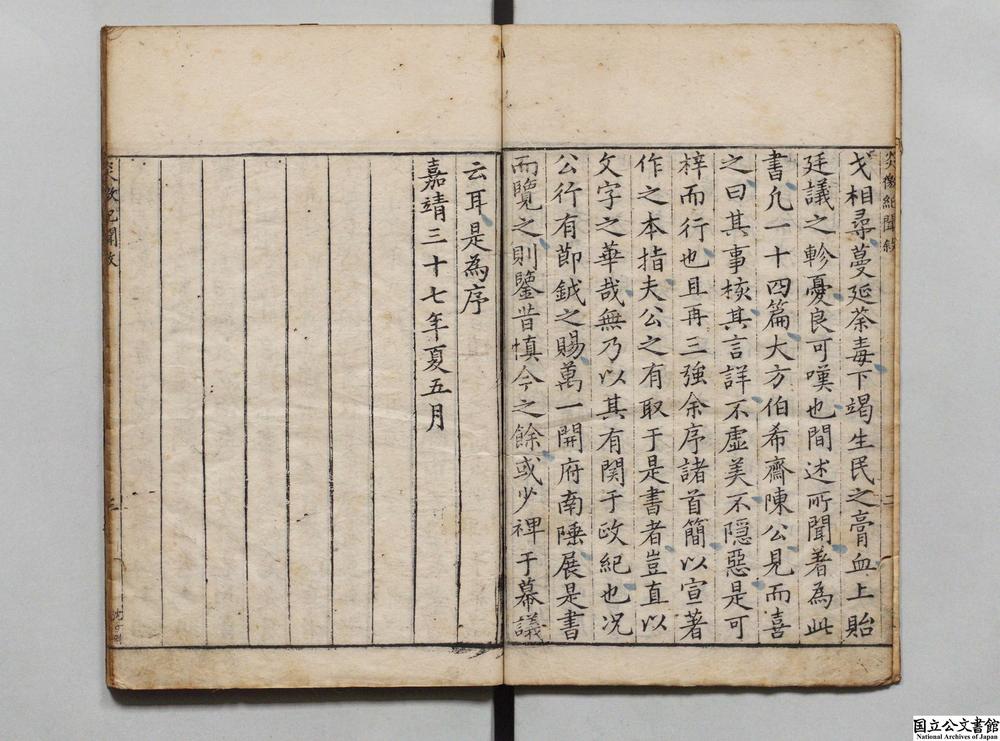 炎徼紀聞敘
二
戈相尋蔓延荼毒下竭生民之膏血上貽
廷議之軫憂良可嘆也間述所聞著為此
書凡一十四篇大方伯希齋陳公見而喜
之曰其事核其言詳不虛美不隱惡是可
梓而行也且再三強余序諸首簡以宣著
作之本指夫公之有取于是書者豈直以
文字之華哉無乃以其有関于政紀也况
公行有節鉞之賜萬一開府南陲展是書
而覽之則鑒昔慎今之餘或少裨于幕議
云耳是為序
嘉靖三十七年夏五月
炎徼紀聞敘
国立公文書館
National Archives of Japan